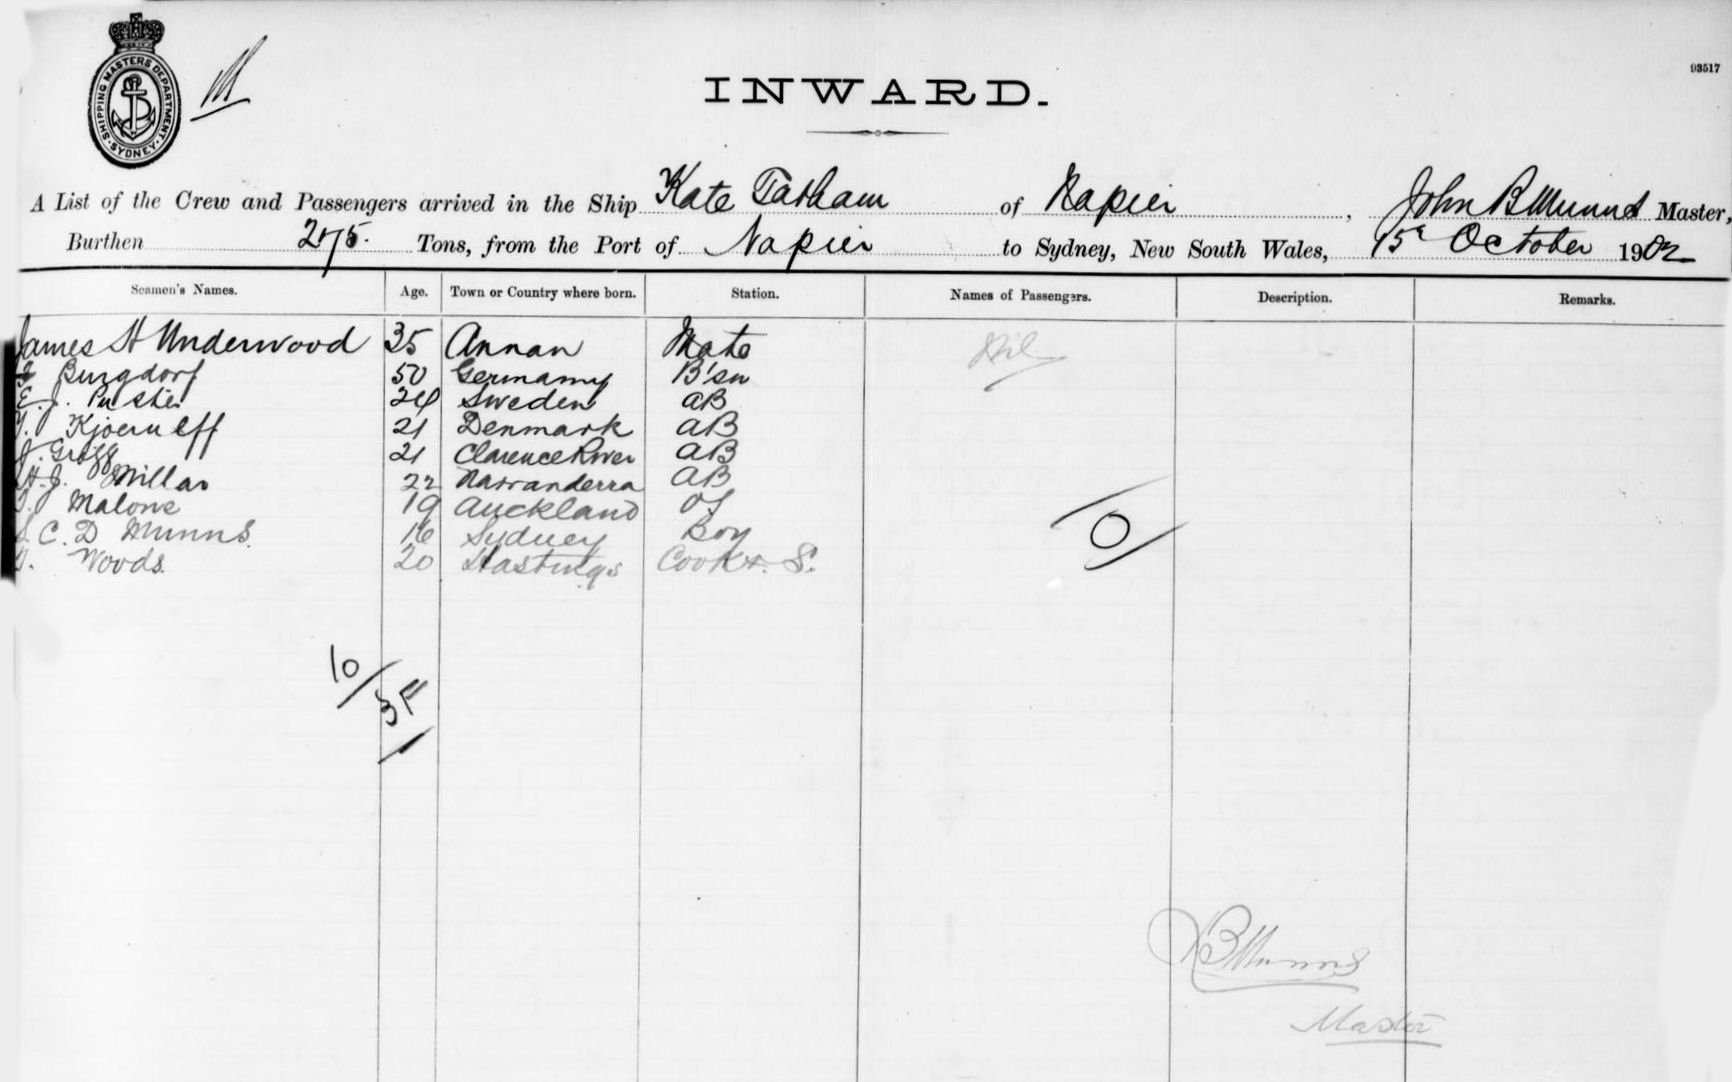 SHIPPING MASTERS DEPARTMENT · SYDNEY ·
93517
INWARD.
A List of the Crew and Passengers arrived in the Ship Kate Tatham of Napier, John B Munns Master,
Burthen 275. Tons, from the Port of Napier to Sydney, New South Wales, 15 October 1902
Seamen's Names. Age. Town or Country where born. Station. Names of Passengers. Description. Remarks.
James H Underwood 35 Annan Mate Nil
Burgdorf 50 Germany B'sn
E. J. 24 Sweden AB
Kjoerulff 21 Denmark AB
J. Gregg 21 Clarence River AB
H. J. Millar 22 Narranderra AB
Malone 19 Auckland OS
C. D Munns 16 Sydney Boy
Woods 20 Hastings Cook & S.
0
10
J B Munns
Master